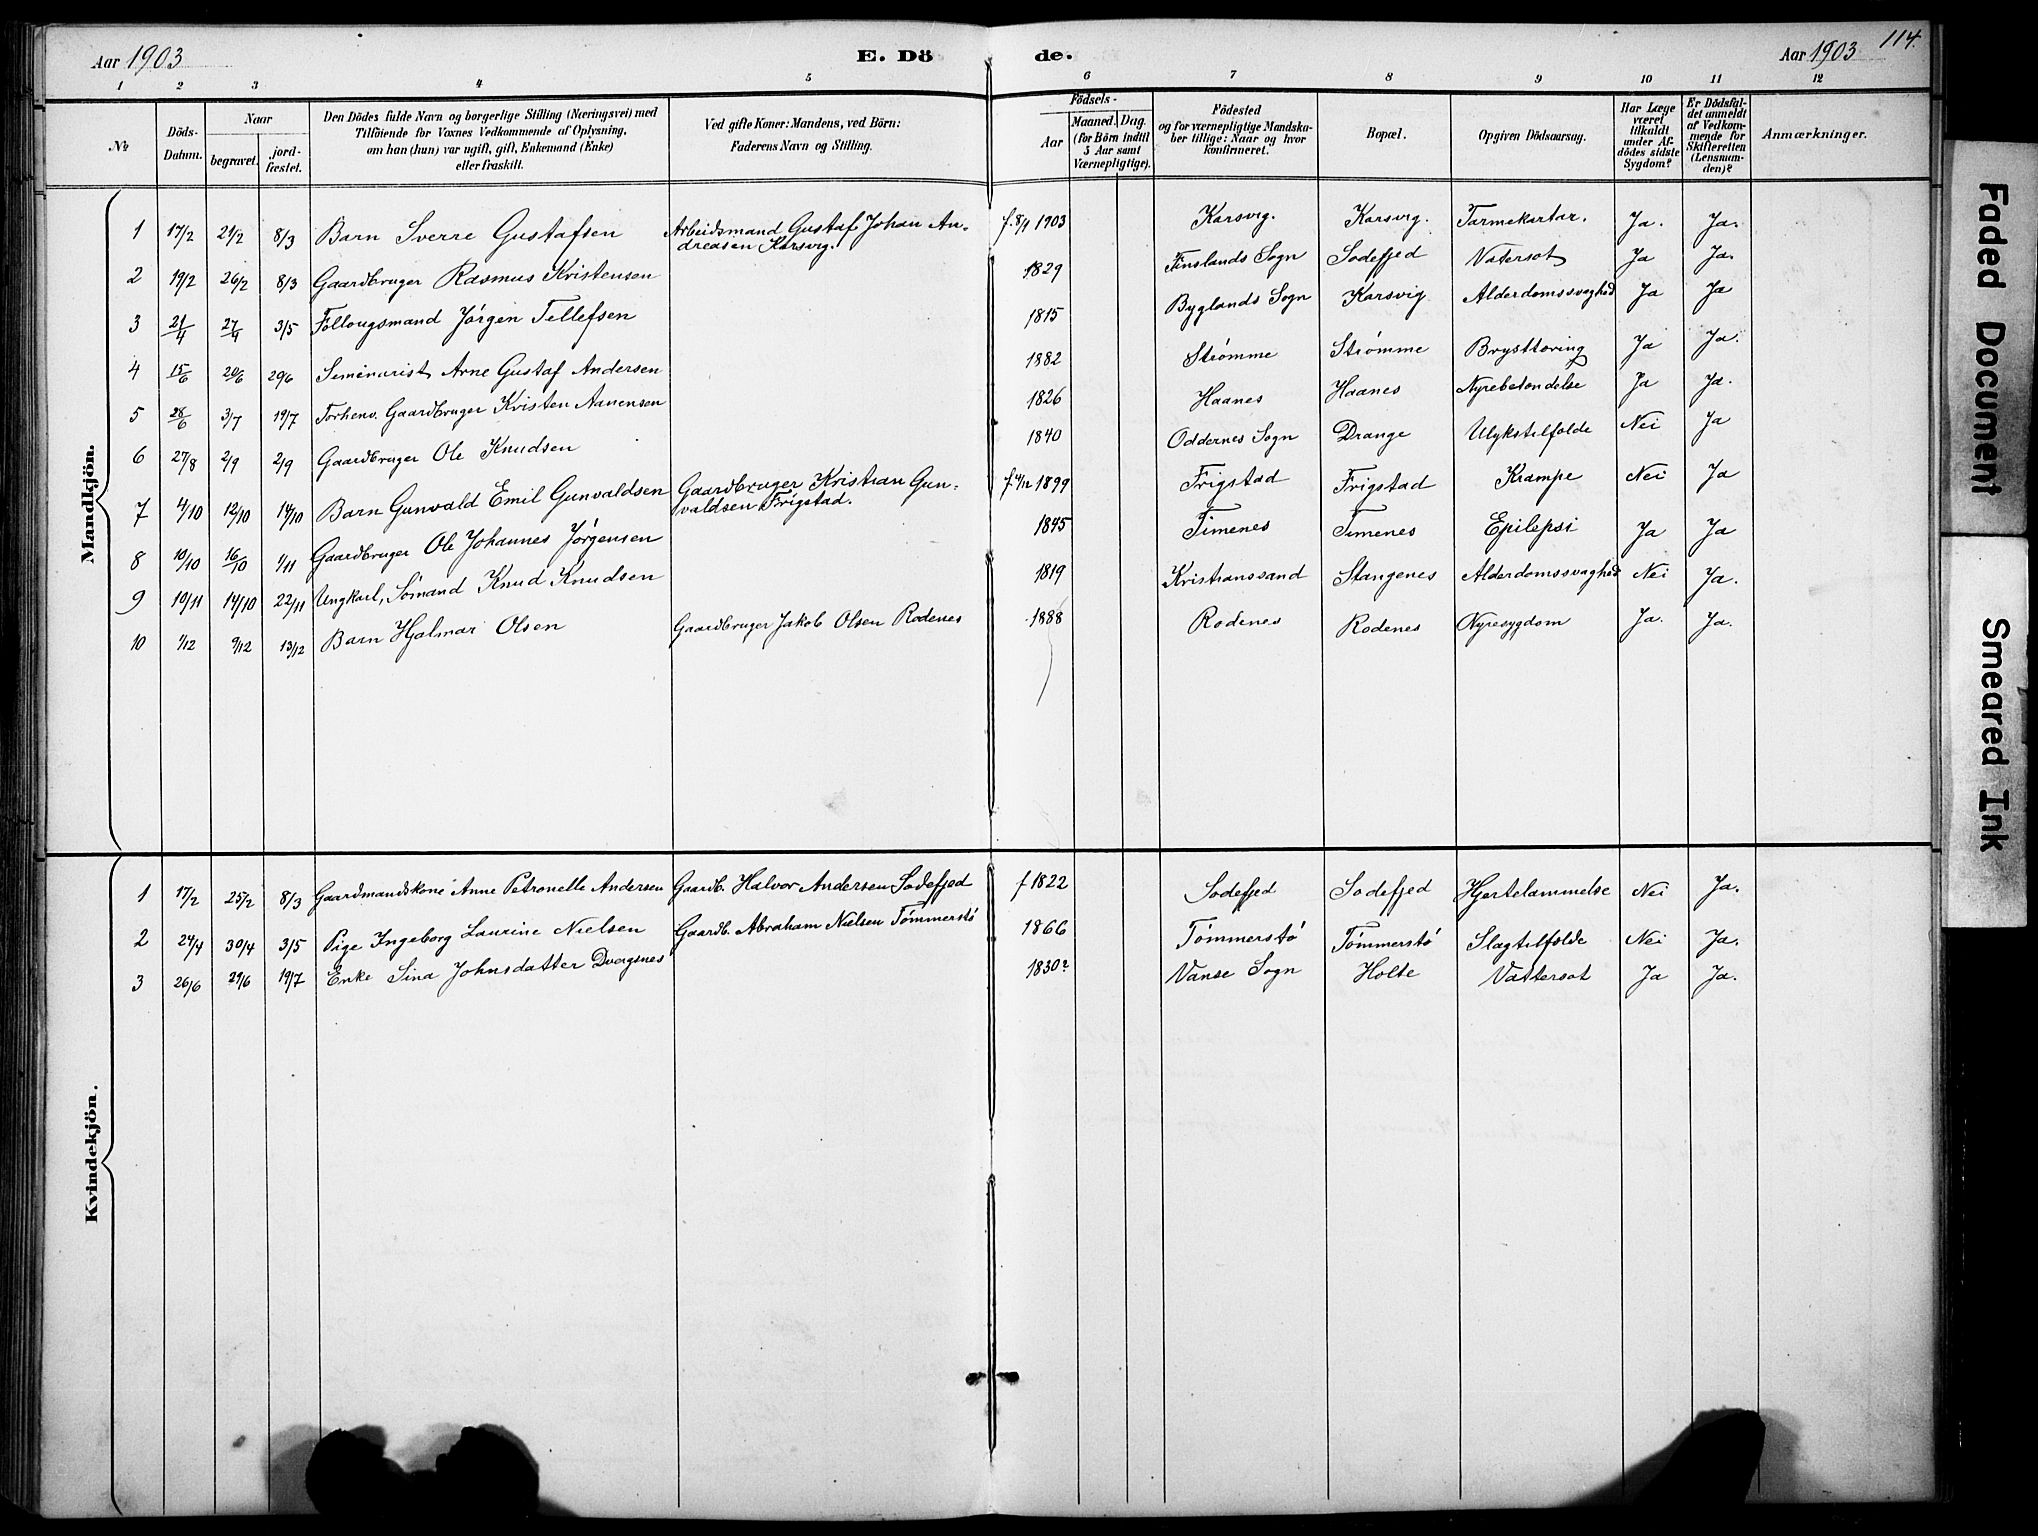 Aar 1903
E. Döde.
Aar 1903
114.
1 2 3 4 5 6 7 8 9 10 11 12
№
Döds-Datum.
Naar
begravet.
jord-fæstet.
Den Dödes fulde Navn og borgerlige Stilling (Næringsvei) med
Tilföiende for Voxnes Vedkommende af Oplysning,
om han (hun) var ugift, gift, Enkemand (Enke)
eller fraskilt.
Ved gifte Koner: Mandens, ved Börn:
Faderens Navn og Stilling.
Födsels-
Aar
Maaned. Dag.
(for Börn indtil
5 Aar samt
Værnepligtige).
Födested
og for værnepligtige Mandska-
ber tillige: Naar og hvor
konfirmeret.
Bopæl.
Opgiven Dödsaarsag.
Har Læge
været
tilkaldt
under Af-
dödes sidste
Sygdom?
Er Dödsfal-
det anmeldt
af Vedkom-
mende for
Skifteretten
(Lensman-
den)?
Anmærkninger.
Mandkjön.
1 17/2 21/2 8/3 Barn Sverre Gustafsen Arbeidsmand Gustaf Johan An-
dreasen Korsvig. f. 8/1 1903 Korsvig. Korsvig. Tarmekartar. Ja. Ja.
2 19/2 26/2 8/3 Gaardbruger Rasmus Kristensen 1829 Finslands Sogn Sodefjed Vatersot Ja Ja.
3 21/4 27/4 3/5 Föllougsmand Jørgen Tellefsen 1815 Byglands Sogn Korsvig Alderdomssvaghed Ja Ja
4 15/6 20/6 29/6 Seminarist Arne Gustaf Andersen 1882 Strømme Strømme Brysttæring Ja Ja.
5 28/6 3/7 19/7 Forhenv. Gaardbruger Kristen Aanensen 1826 Haanes Haanes Nyrebetændelse Ja Ja.
6 27/8 2/9 2/9 Gaardbruger Ole Knudsen 1840 Oddernes Sogn Drange Ulykstilfælde Nei Ja
7 4/10 12/10 14/10 Barn Gunvald Emil Gunvaldsen Gaardbruger Kristian Gun-
valdsen Frigstad. 1899 Frigstad Frigstad Krampe Nei Ja
8 10/10 16/10 1/11 Gaardbruger Ole Johannes Jørgensen 1845 Timenes Timenes Epilepsi Ja Ja
9 10/11 14/10 22/11 Ungkarl, Sømand Knud Knudsen 1819 Kristianssand Stangenes Alderdomssvaghed Nei Ja.
10 1/12 9/12 13/12 Barn Hjalmar Olsen Gaardbruger Jakob Olsen Rodenes 1888 Rodenes Rodenes Nyresygdom Ja. Ja.
Kvindekjön.
1 17/2 25/2 8/3 Gaardmandskone Anne Petronelle Andersen Gaardb. Halvor Andersen Sodefjed f 1822 Sodefjed Sodefjed Hjertelammelse Nei Ja.
2 24/4 30/4 3/5 Pige Ingeborg Laurine Nielsen Gaardb. Abraham Nielsen Tømmerstø 1866 Tømmerstø Tømmerstø Slagtilfælde Nei Ja.
3 26/6 29/6 19/7 Enke Sina Johnsdatter Dvergsnes 1830? Vanse Sogn Holte Vattersot Ja Ja.
Faded Document
Smeared Ink